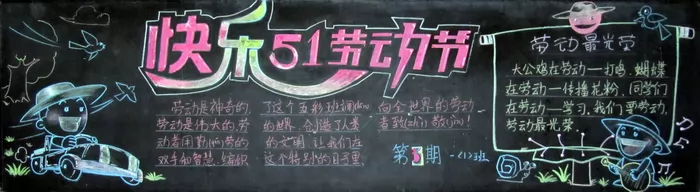 快乐51劳动节
劳动是神奇的,
劳动是伟大的,劳
动者用勤(qín)劳的
双手和智慧,编织
了这个五彩斑斓(lán)
的世界,创造了人类
的文明。让我们在
这个特别的日子里,
向全世界的劳动
者致(zhì)敬(jìng)!
第3期 一(1)班
劳动最光荣
大公鸡在劳动—打鸣,蝴蝶
在劳动—传播花粉,同学们
在劳动—学习,我们要劳动,
劳动最光荣。